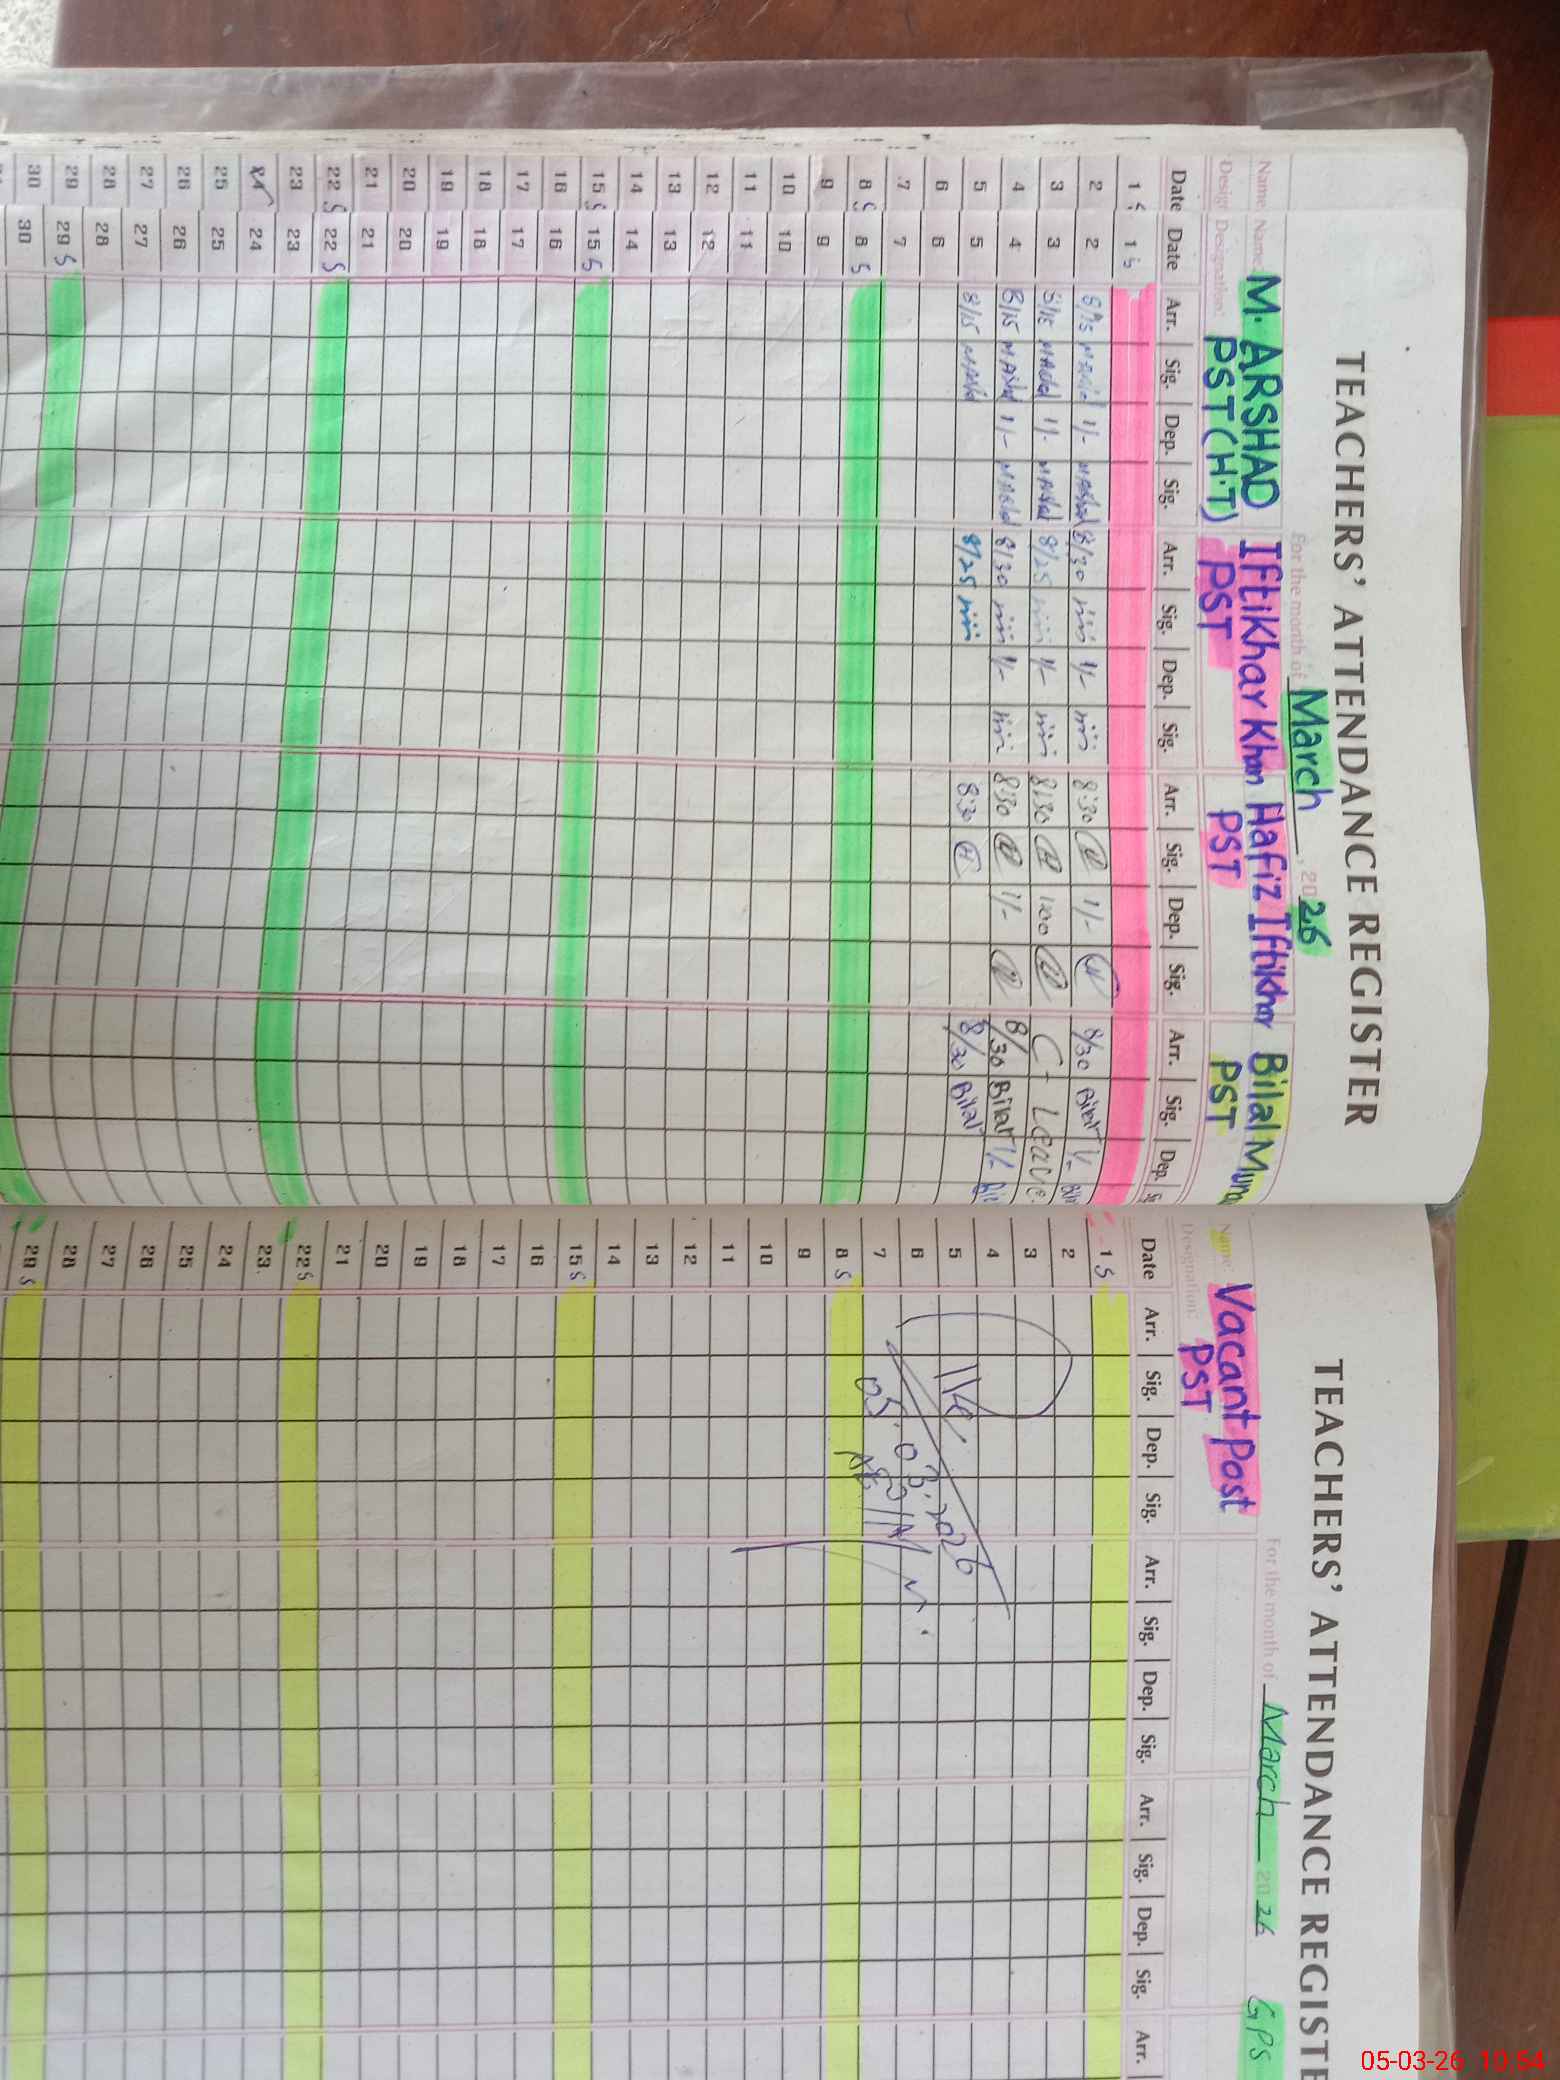 TEACHERS' ATTENDANCE REGISTER
For the month of March, 2026
Name: Name: M. ARSHAD Iftikhar Khan Hafiz Iftikhar Bilal
Designation: PST (H.T) PST PST PST
Date Date Arr. Sig. Dep. Sig. Arr. Sig. Dep. Sig. Arr. Sig. Dep. Sig. Arr. Sig. Dep.
1 S 1 S
2 2 1/- 8/30 1/- 8:30 1/- 8/30 Bilal 1/-
3 3 8/15 1/- 8/25 1/- 8:30 1:00 C - Leave.
4 4 8/15 1/- 8/30 1/- 8:30 1/- 8/30 Bilal 1/-
5 5 8/15 8/25 8:30 8/30 Bilal
6 6
7 7
8 S 8 S
9 9
10 10
11 11
12 12
13 13
14 14
15 S 15 S
16 16
17 17
18 18
19 19
20 20
21 21
22 S 22 S
23 23
24
25 25
26 26
27 27
28 28
29 29 S
30 30
TEACHERS' ATTENDANCE REGISTE
For the month of March 2026 GPS
Name: Vacant Post
Designation: PST
Date Arr. Sig. Dep. Sig. Arr. Sig. Dep. Sig. Arr. Sig. Dep. Sig. Arr.
1 S
2
3
4
5
6
7
8 S
9
10
11
12
13
14
15 S
16
17
18
19
20
21
22 S
23
24
25
26
27
28
29 S
05.03.2026
05-03-26 10:54